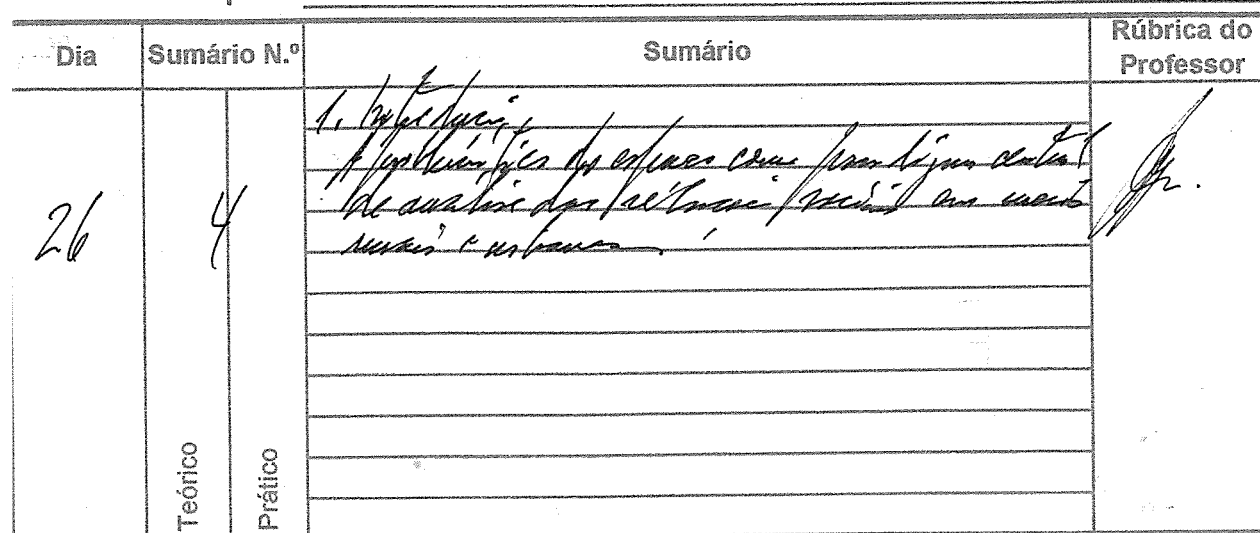 Dia Sumário N.º Sumário Rúbrica do Professor
26 4 1. Introdução
do espaço como paradigma central
de análise das relações sociais em meios
rurais e urbanos.
Teórico
Prático